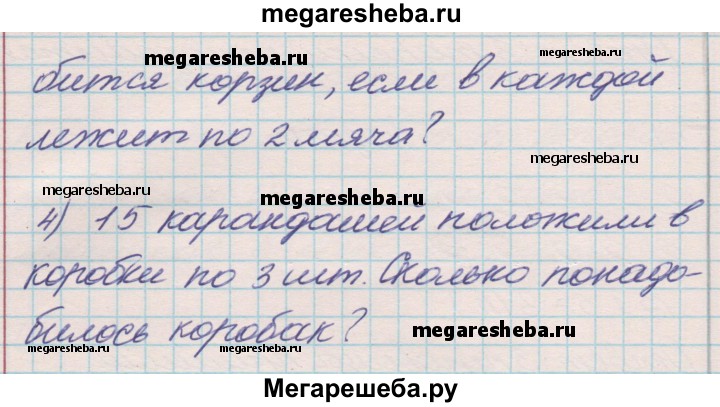 megaresheba.ru
megaresheba.ru megaresheba.ru
бится корзин, если в каждой
лежит по 2 мяча?
megaresheba.ru
megaresheba.ru megaresheba.ru
4) 15 карандашей положили в
коробки по 3 шт. Сколько понадо-
билось коробак?
megaresheba.ru
megaresheba.ru megaresheba.ru
Мегарешеба.ру